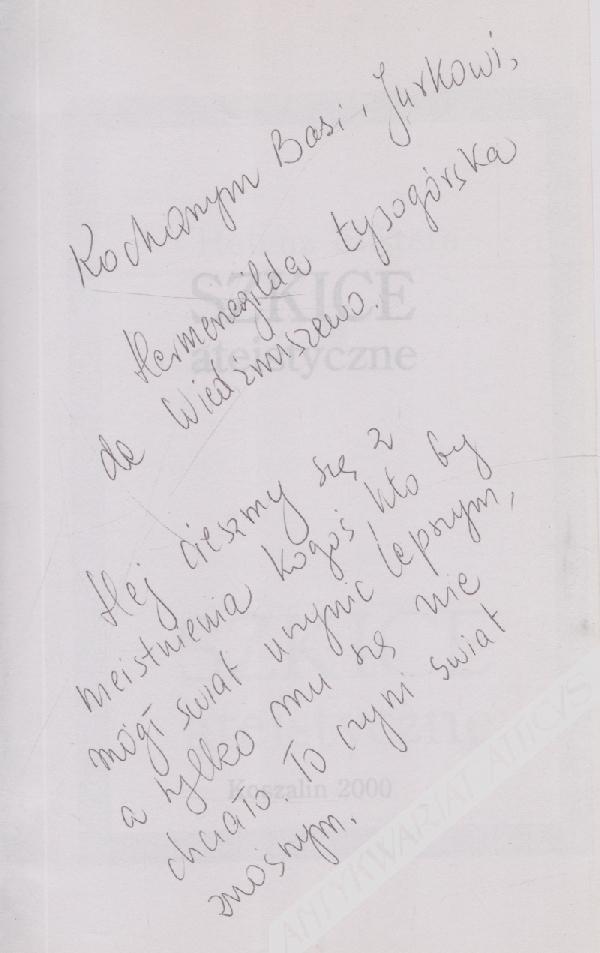 Kochanym Basi, Jurkowi,
Hermenegilda Łysogórska
de Wiedźmiszewo.
Hej cieszmy się z
nieistnienia kogoś kto by
mógł świat uczynić lepszym,
a tylko mu się nie
chciało. To czyni świat
znośnym.
SZKICE
ateistyczne
Koszalin 2000
ANTYKWARIAT ATTICVS